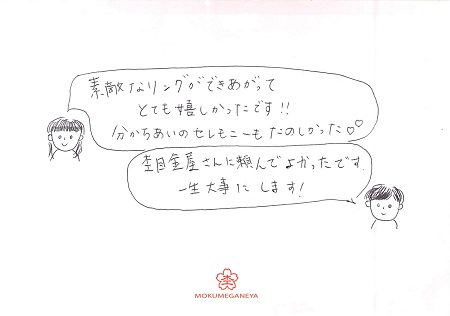 素敵なリングができあがって
とても嬉しかったです!!
分かちあいのセレモニーもたのしかった♡♡
杢目金屋さんに頼んでよかったです.
一生大事にします!
杢
MOKUMEGANEYA